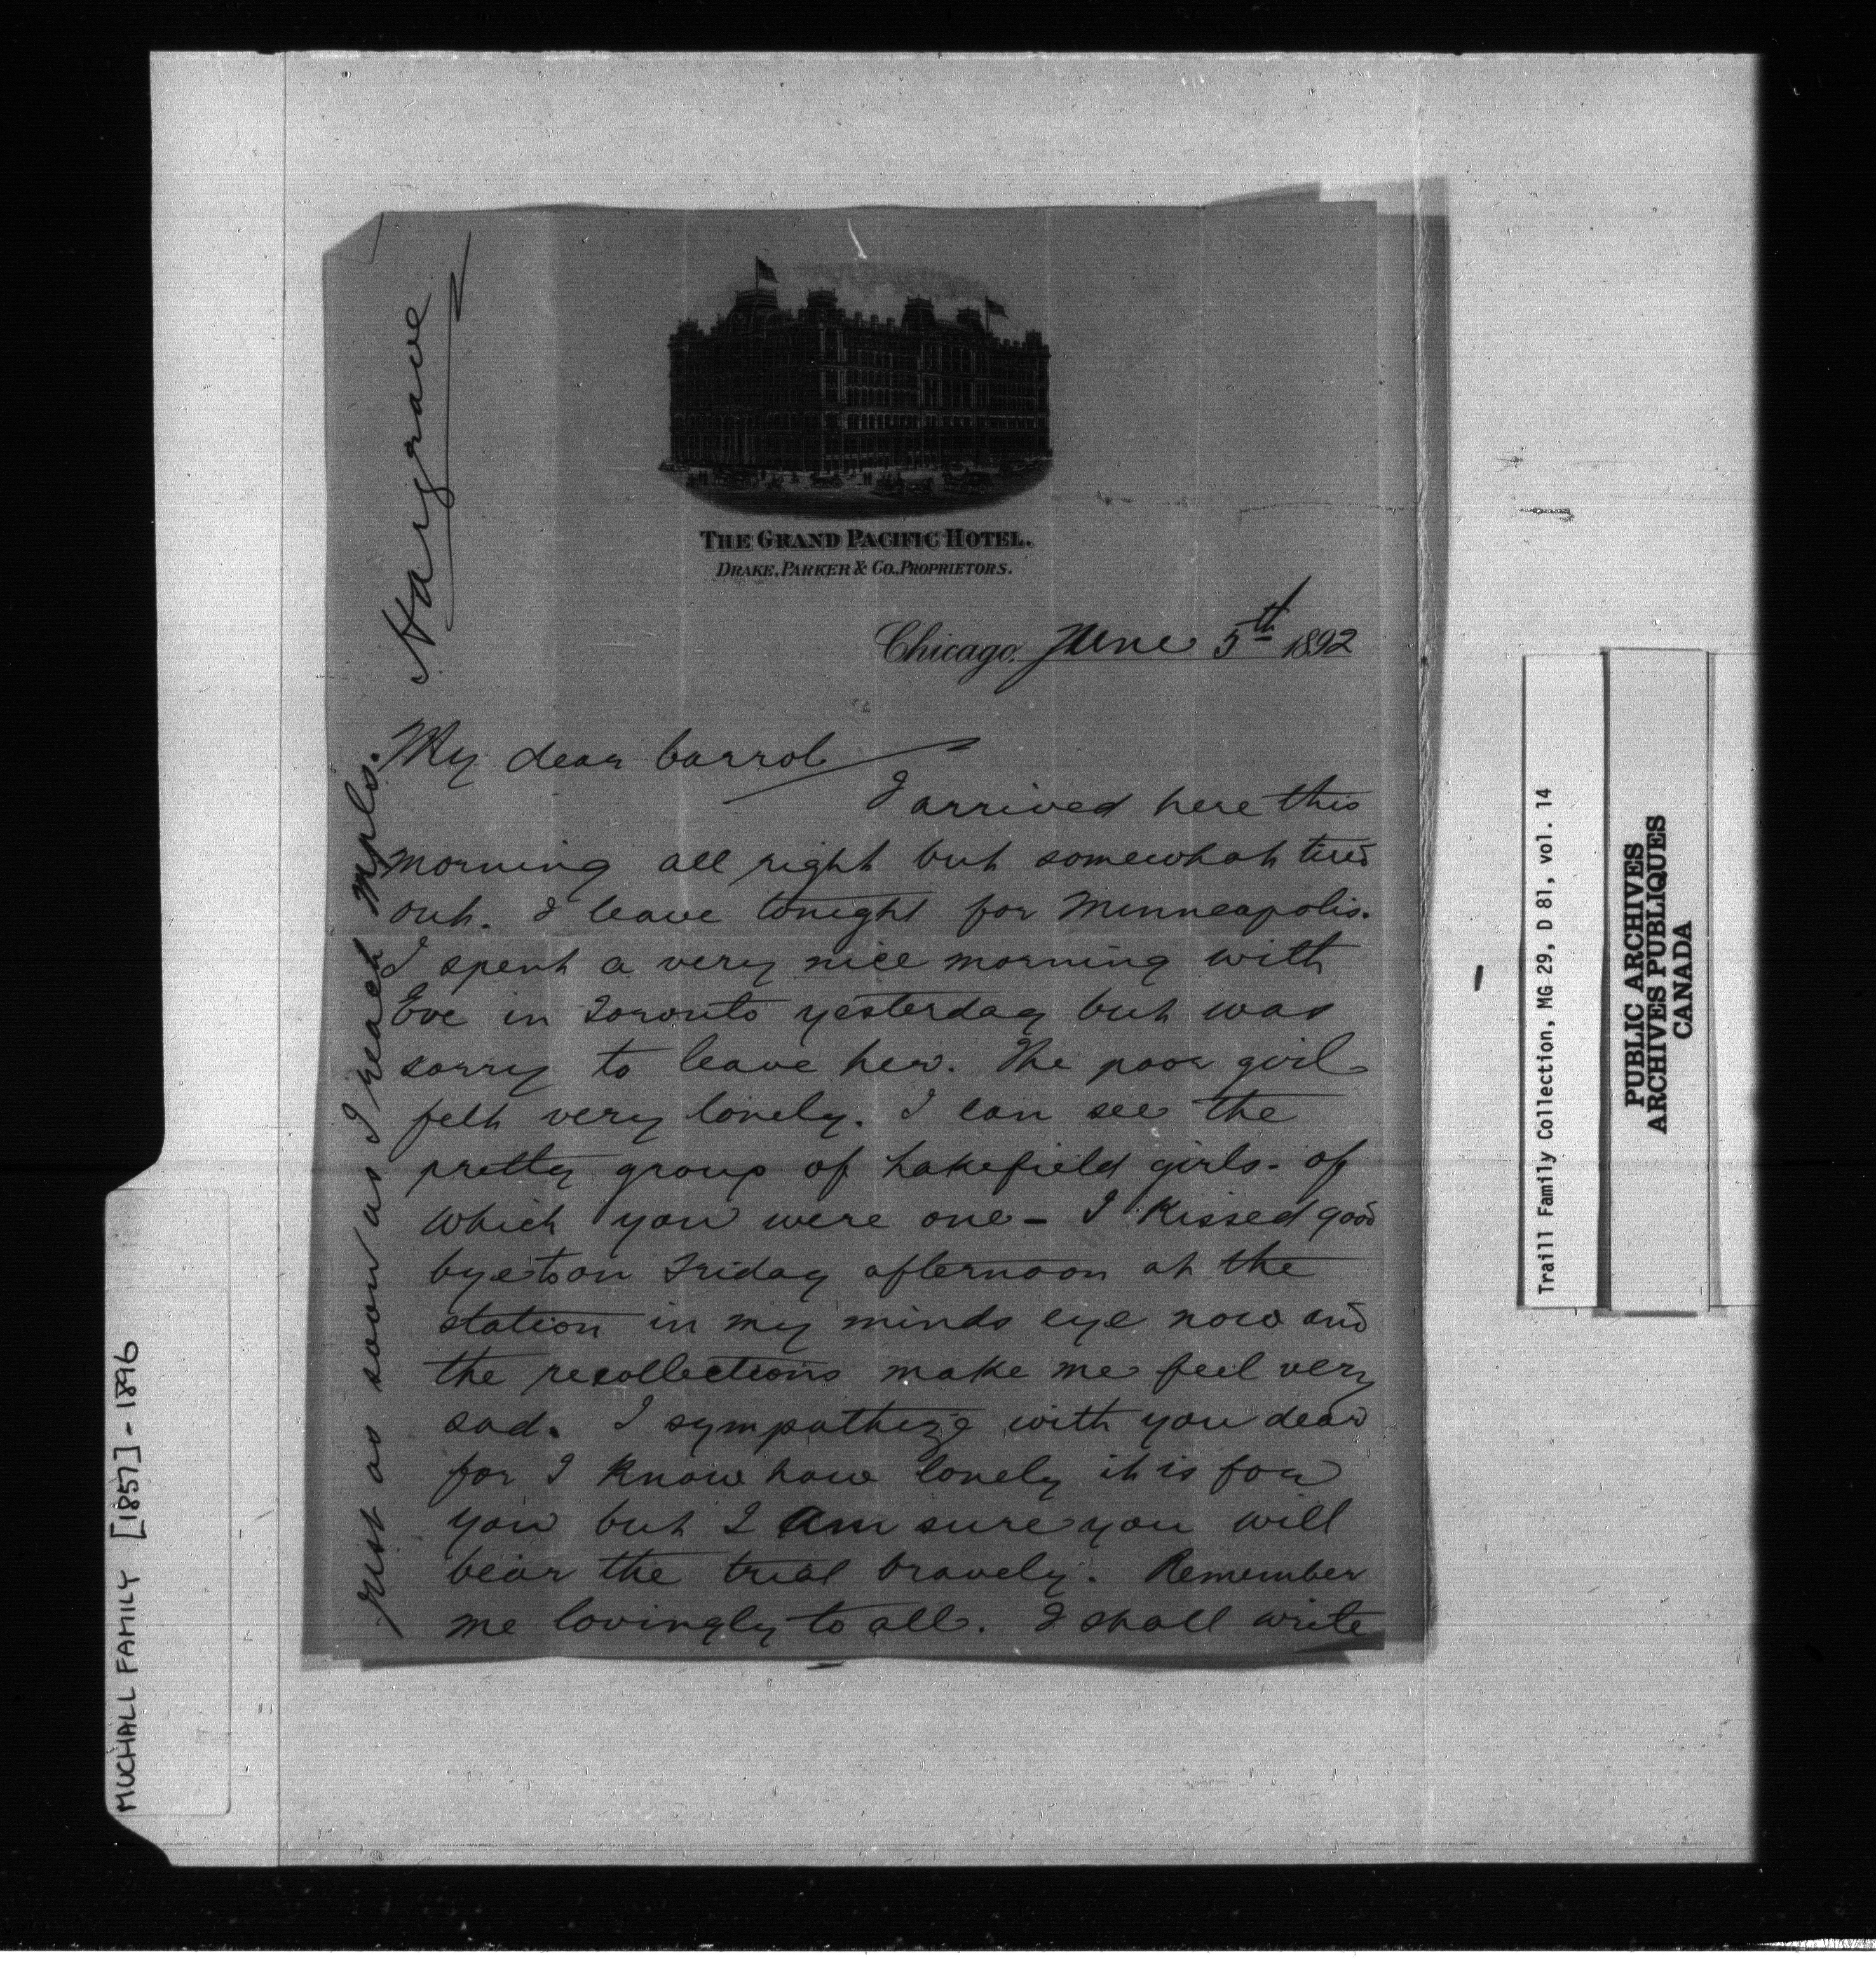 THE GRAND PACIFIC HOTEL.
DRAKE, PARKER & CO., PROPRIETORS.
Chicago, June 5th 1892
My dear Carrol
I arrived here this
morning all right but somewhat tired
out. I leave tonight for Minneapolis.
I spent a very nice morning with
Eve in Toronto yesterday but was
sorry to leave her. The poor girl
felt very lonely. I can see the
pretty group of Lakefield girls - of
which you were one - I kissed good
bye to on Friday afternoon at the
station in my minds eye now and
the recollections make me feel very
sad. I sympathize with you dear
for I know how lonely it is for
you but I am sure you will
bear the trial bravely. Remember
me lovingly to all. I shall write
just as soon as I reach Mpls.
Hargrave
MUCHALL FAMILY [1857] - 1896
Traill Family Collection, MG 29, D 81, vol. 14
PUBLIC ARCHIVES
ARCHIVES PUBLIQUES
CANADA